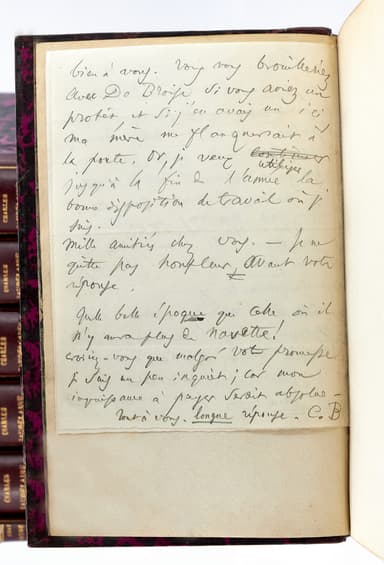 bien à vous. Vous vous brouilleriez
avec De Broise si vous aviez un
protêt et si j'en avais un ici,
ma mère me flanquerait à
la porte. Or, je veux continuer utiliser
jusqu'à la fin de l'année la
bonne disposition de travail où je
suis.
Mille amitiés chez vous. — Je ne
quitte pas Honfleur, avant votre
réponse.
Quelle belle époque que celle où il
n'y aura plus de navette!
croiriez-vous que malgré votre promesse
je suis un peu inquiet; car mon
impuissance à payer serait absolue —
Tout à vous. longue réponse. C. B
CHARLES
CHARLES
CHARLES
BAUDELAIRE
CHARLES
BAUDELAIRE